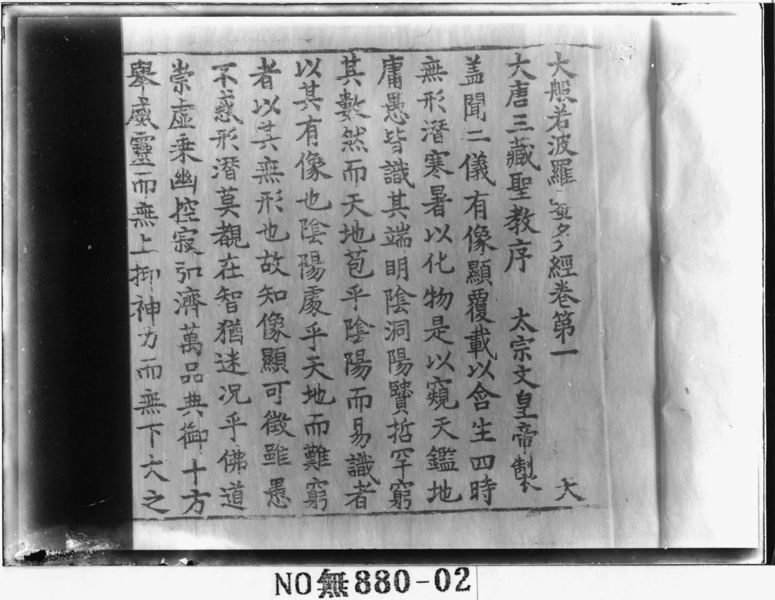 大般若波羅蜜多經卷第一
大唐三藏聖教序 太宗文皇帝製 大
盖聞二儀有像顯覆載以含生四時
無形潛寒暑以化物是以窺天鑑地
庸愚皆識其端明陰洞陽賢哲罕窮
其數然而天地苞乎陰陽而易識者
以其有像也陰陽處乎天地而難窮
者以其無形也故知像顯可徵雖愚
不惑形潛莫覩在智猶迷况乎佛道
崇虛乘幽控寂弘濟萬品典御十方
舉威靈而無上抑神力而無下大之
NO無880-02